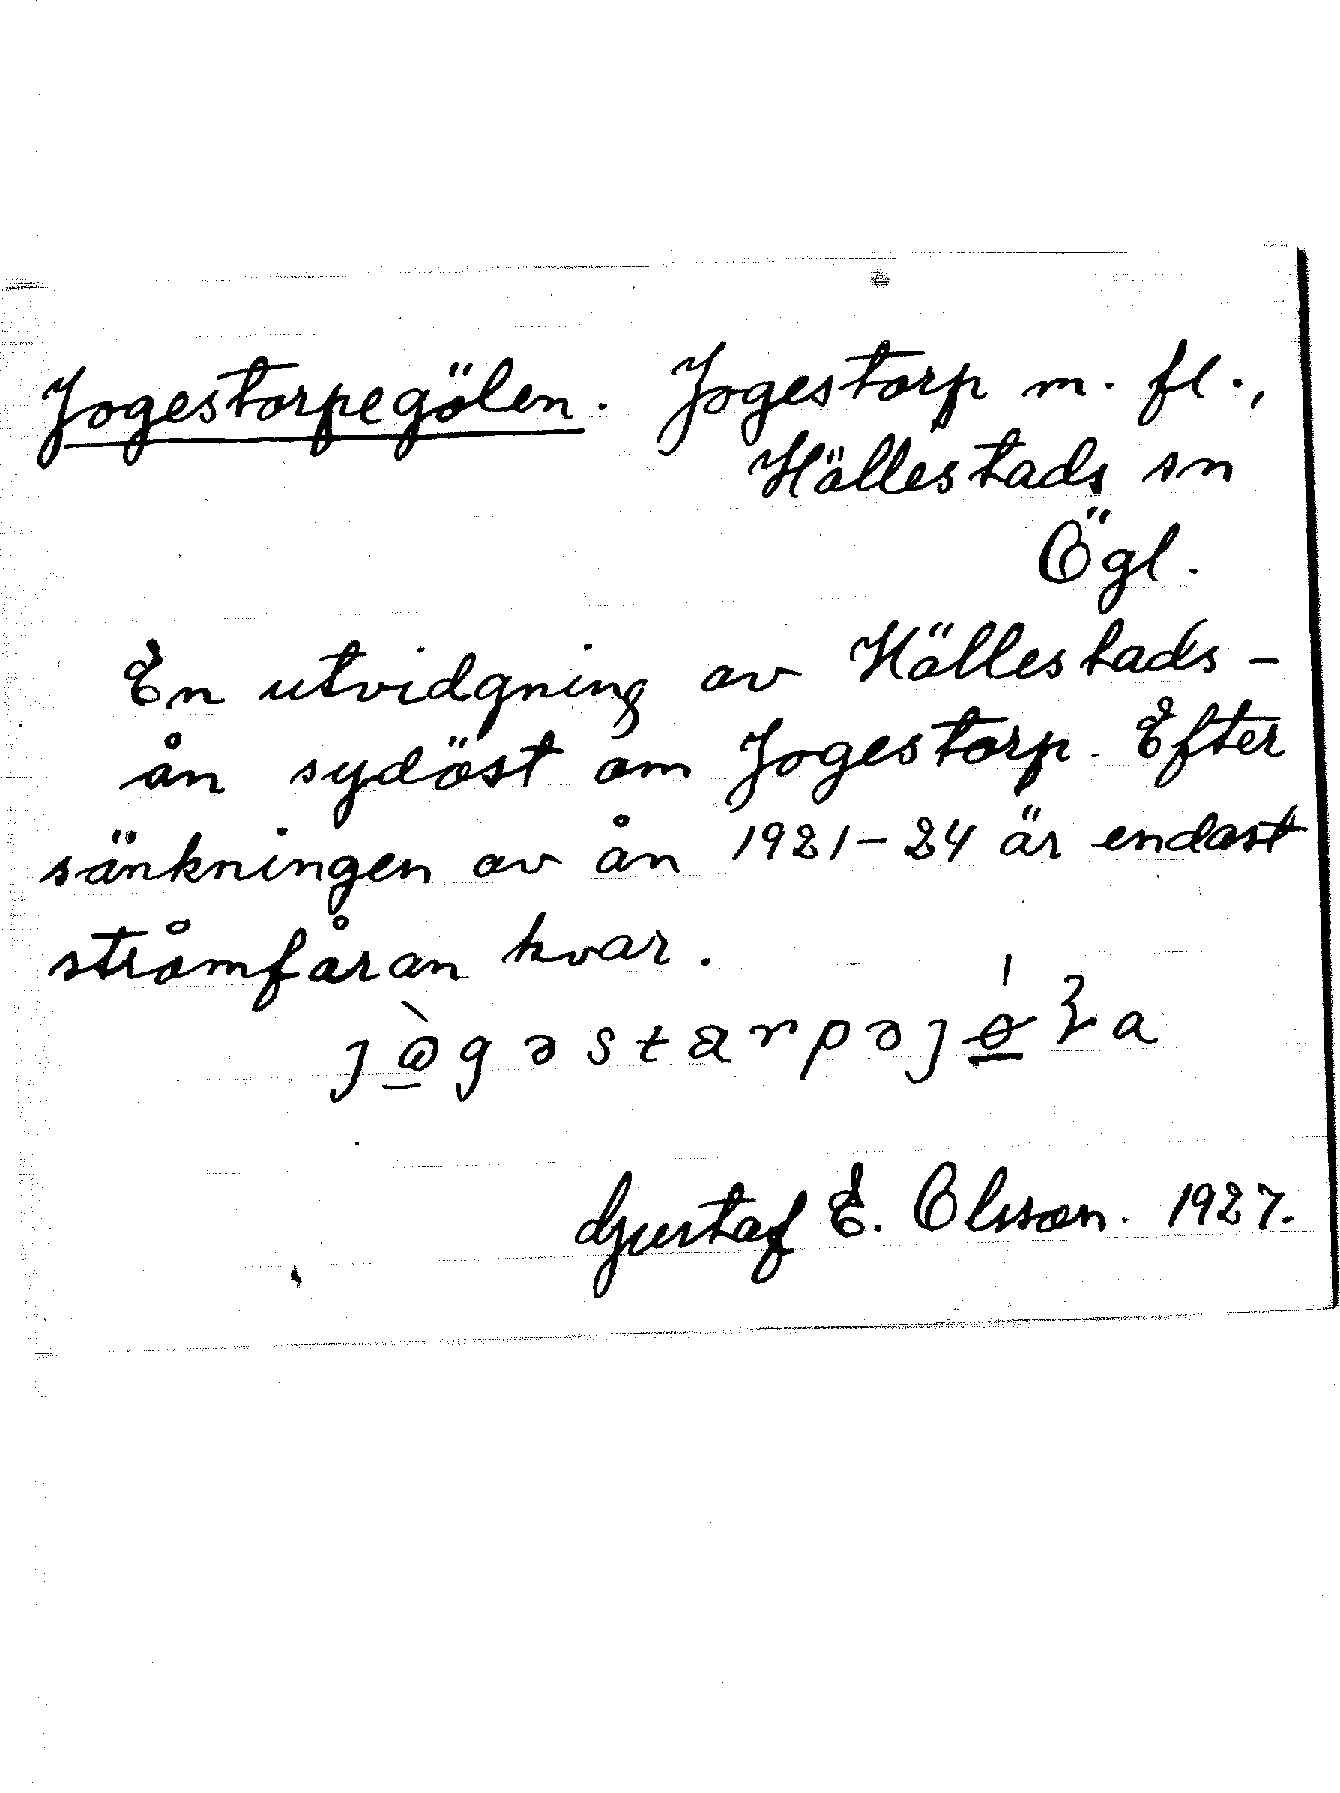 Jogestorpegölen. Jogestorp m. fl.,
Hällestads sn
Ögl.
En utvidgning av Hällestads-
ån sydöst om Jogestorp. Efter
sänkningen av ån 1921-24 är endast
stråmfåran kvar.
Gustaf E. Olsson. 1927.